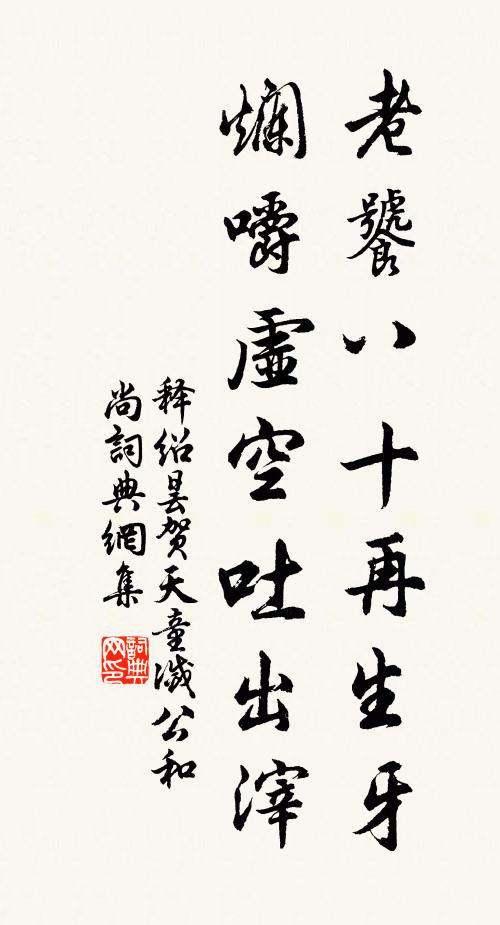 老饕八十再生牙
爛嚼虛空吐出滓
釋紹曇賀天童滅公和
尚詞典網集
詞典
网印